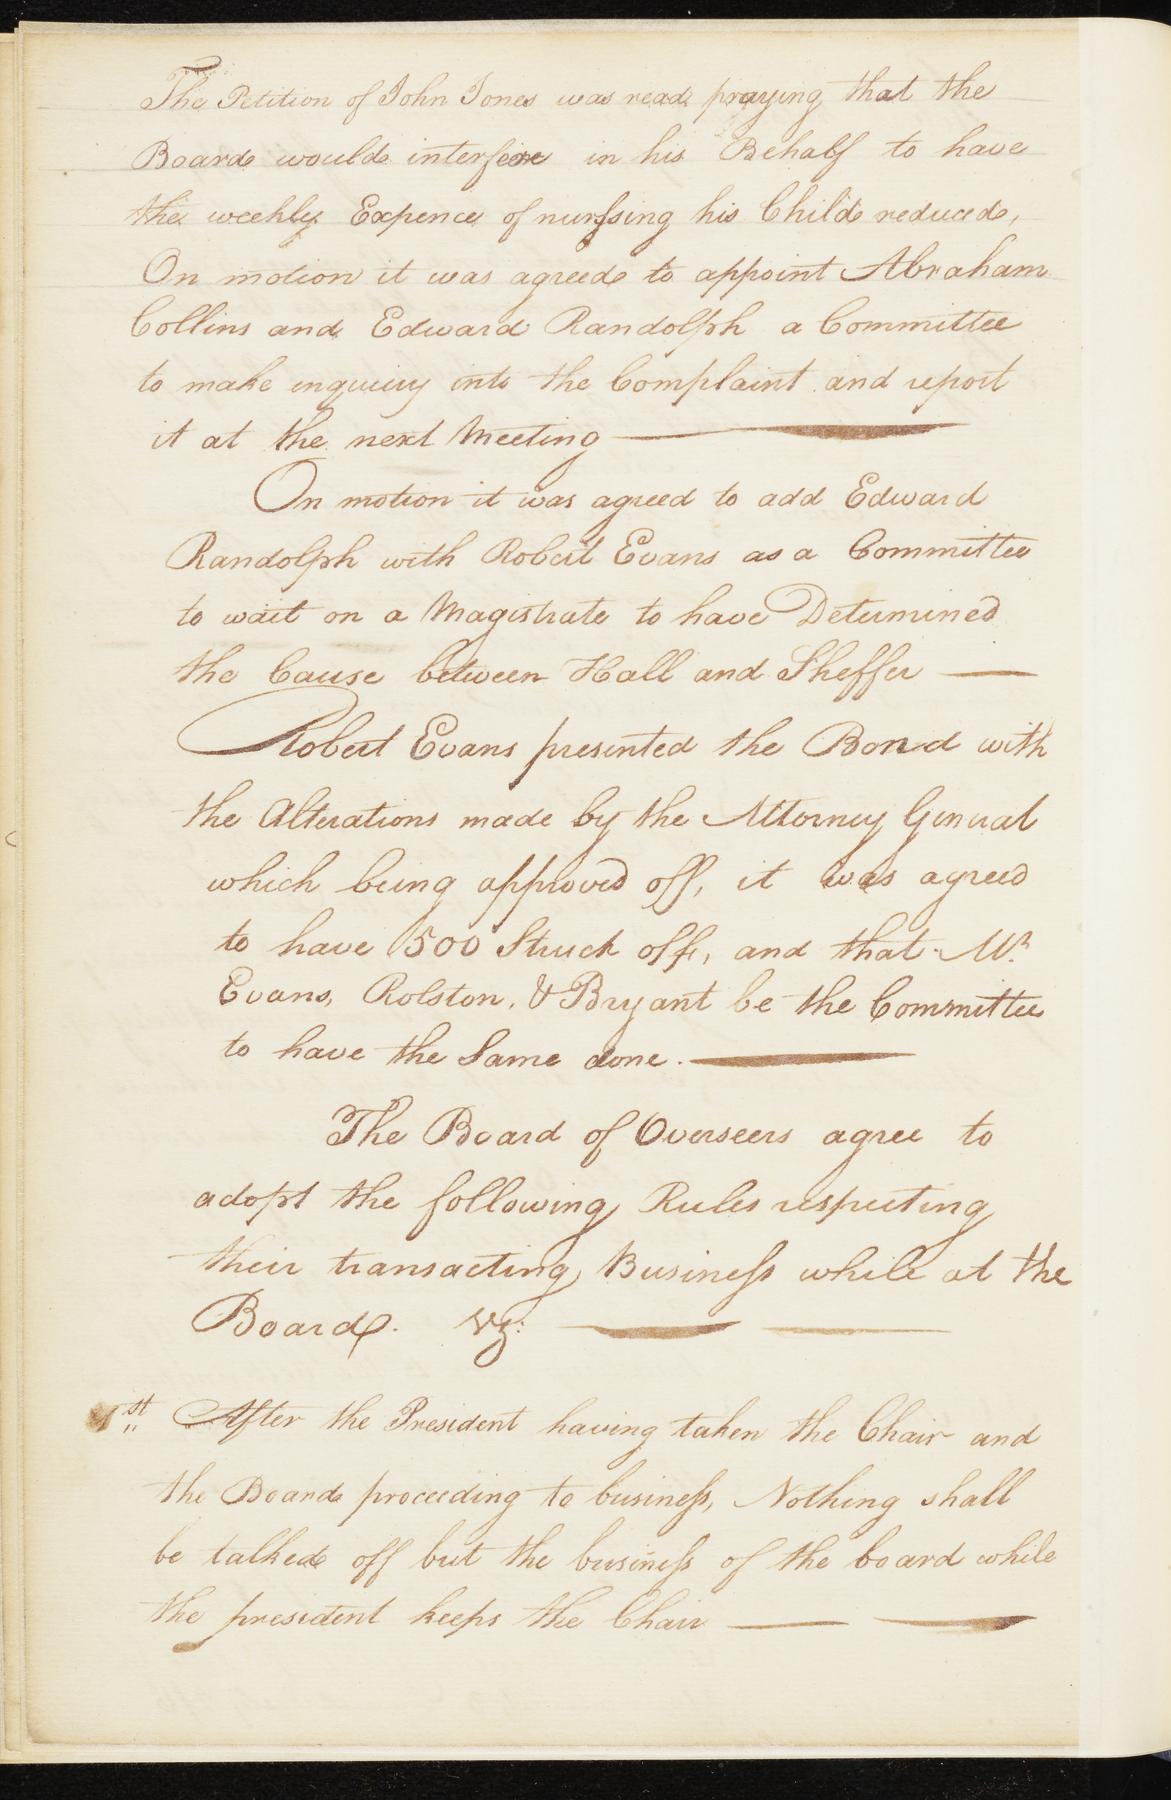 The Petition of John Jones was read praying that the
Board would interfere in his Behalf to have
the weekly Expence of nurſsing his Child reduced,
On motion it was agreed to appoint Abraham
Collins and Edward Randolph a Committee
to make inquiry into the Complaint and report
it at the next Meeting
On motion it was agreed to add Edward
Randolph with Robert Evans as a Committee
to wait on a Magistrate to have Determined
the Cause between Hall and Sheffer
Robert Evans presented the Bond with
the Alterations made by the Attorney General
which being approved off, it was agreed
to have 1500 Struck off, and that Mr.
Evans, Rolston, & Bryant be the Committee
to have the Same done.
The Board of Overseers agree to
adopt the following Rules respecting
their transacting Busineſs while at the
Board. Viz:
1st After the President having taken the Chair and
the Board proceeding to busineſs, Nothing shall
be talked off but the busineſs of the board while
the president keeps the Chair